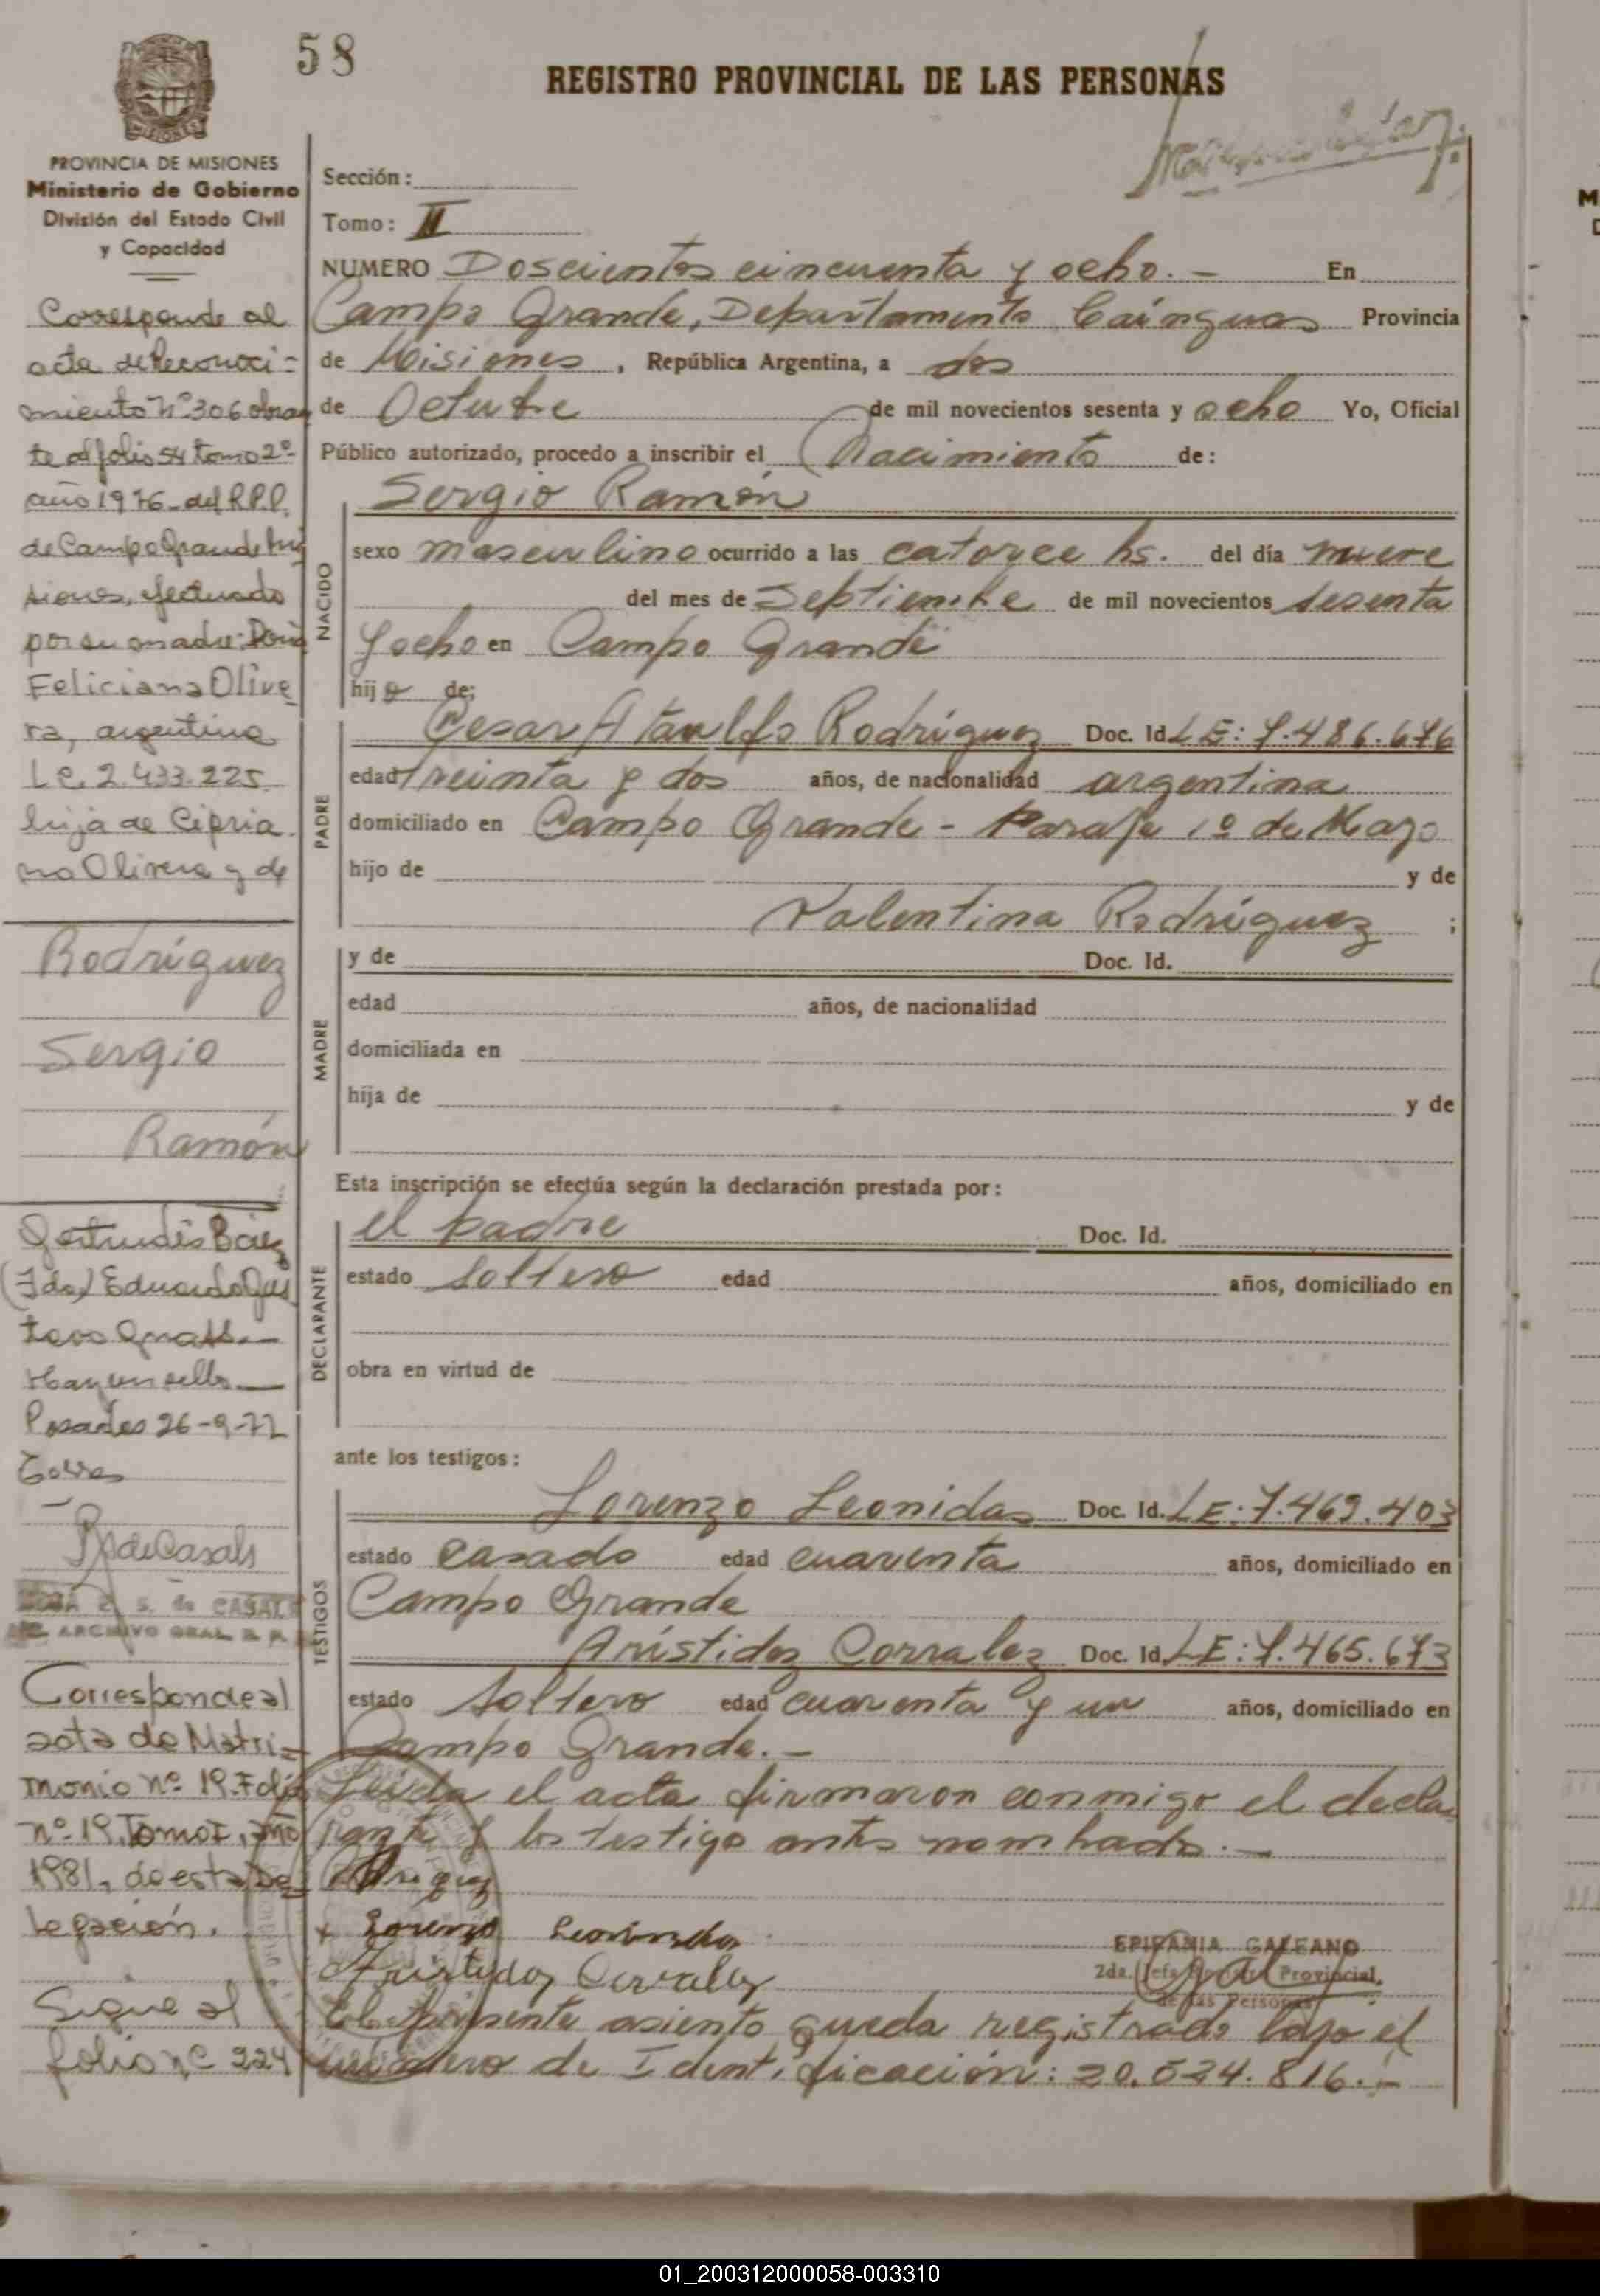 58
REGISTRO PROVINCIAL DE LAS PERSONAS
MISIONES
PROVINCIA DE MISIONES
Ministerio de Gobierno
División del Estado Civil
y Capacidad
Corresponde al
acta de Reconoci-
miento nº 306 obran
te al folio 54 tomo 2º
año 1976 del R.P.P.
de Campo Grande Mi
siones, efectuado
por su madre: Doña
Feliciana Olive
ra, argentina
L.C. 2.433.225
hija de Cipria
no Olivera y de
Rodríguez
Sergio
Ramón
Gertrudis Báez
(Fdo) Eduardo Gus
tavo
Hay un sello.—
Posadas 26-9-77
Torres
R de Casals
S. de CASALS
ARCHIVO GRAL R. P.
Corresponde al
acta de Matri-
monio nº 19. Folio
nº 19, Tomo I, año
1981, de esta De-
legación.
Sigue al
folio nº 224
Sección:
Tomo: II
NUMERO Doscientos cincuenta y ocho.- En
Campo Grande, Departamento Cainguas Provincia
de Misiones, República Argentina, a dos
de Octubre de mil novecientos sesenta y ocho Yo, Oficial
Público autorizado, procedo a inscribir el Nacimiento de:
Sergio Ramón
NACIDO
sexo masculino ocurrido a las catorce hs. del día nueve
del mes de Septiembre de mil novecientos sesenta
y ocho en Campo Grande
hijo de:
PADRE
Cesar Ataulfo Rodríguez Doc. Id. LE: 7.486.676
edad treinta y dos años, de nacionalidad argentina
domiciliado en Campo Grande - Paraje 1º de Mayo
hijo de y de
Valentina Rodríguez ;
MADRE
y de Doc. Id.
edad años, de nacionalidad
domiciliada en
hija de y de
Esta inscripción se efectúa según la declaración prestada por:
DECLARANTE
el padre Doc. Id.
estado soltero edad años, domiciliado en
obra en virtud de
ante los testigos:
TESTIGOS
Lorenzo Leonidas Doc. Id. LE: 7.469.403
estado casado edad cuarenta años, domiciliado en
Campo Grande
Arístides Corralez Doc. Id. LE: 7.465.673
estado soltero edad cuarenta y un años, domiciliado en
Campo Grande.-
Leida el acta firmaron conmigo el decla
rante y los testigo antes nombrado.-
Lorenzo Leonidas
Aristides Corralez
EPIFANIA GALEANO
2da. Jefa Provincial
de las Personas
El presente asiento queda registrado bajo el
número de Identificación: 20.534.816.-
01_200312000058-003310